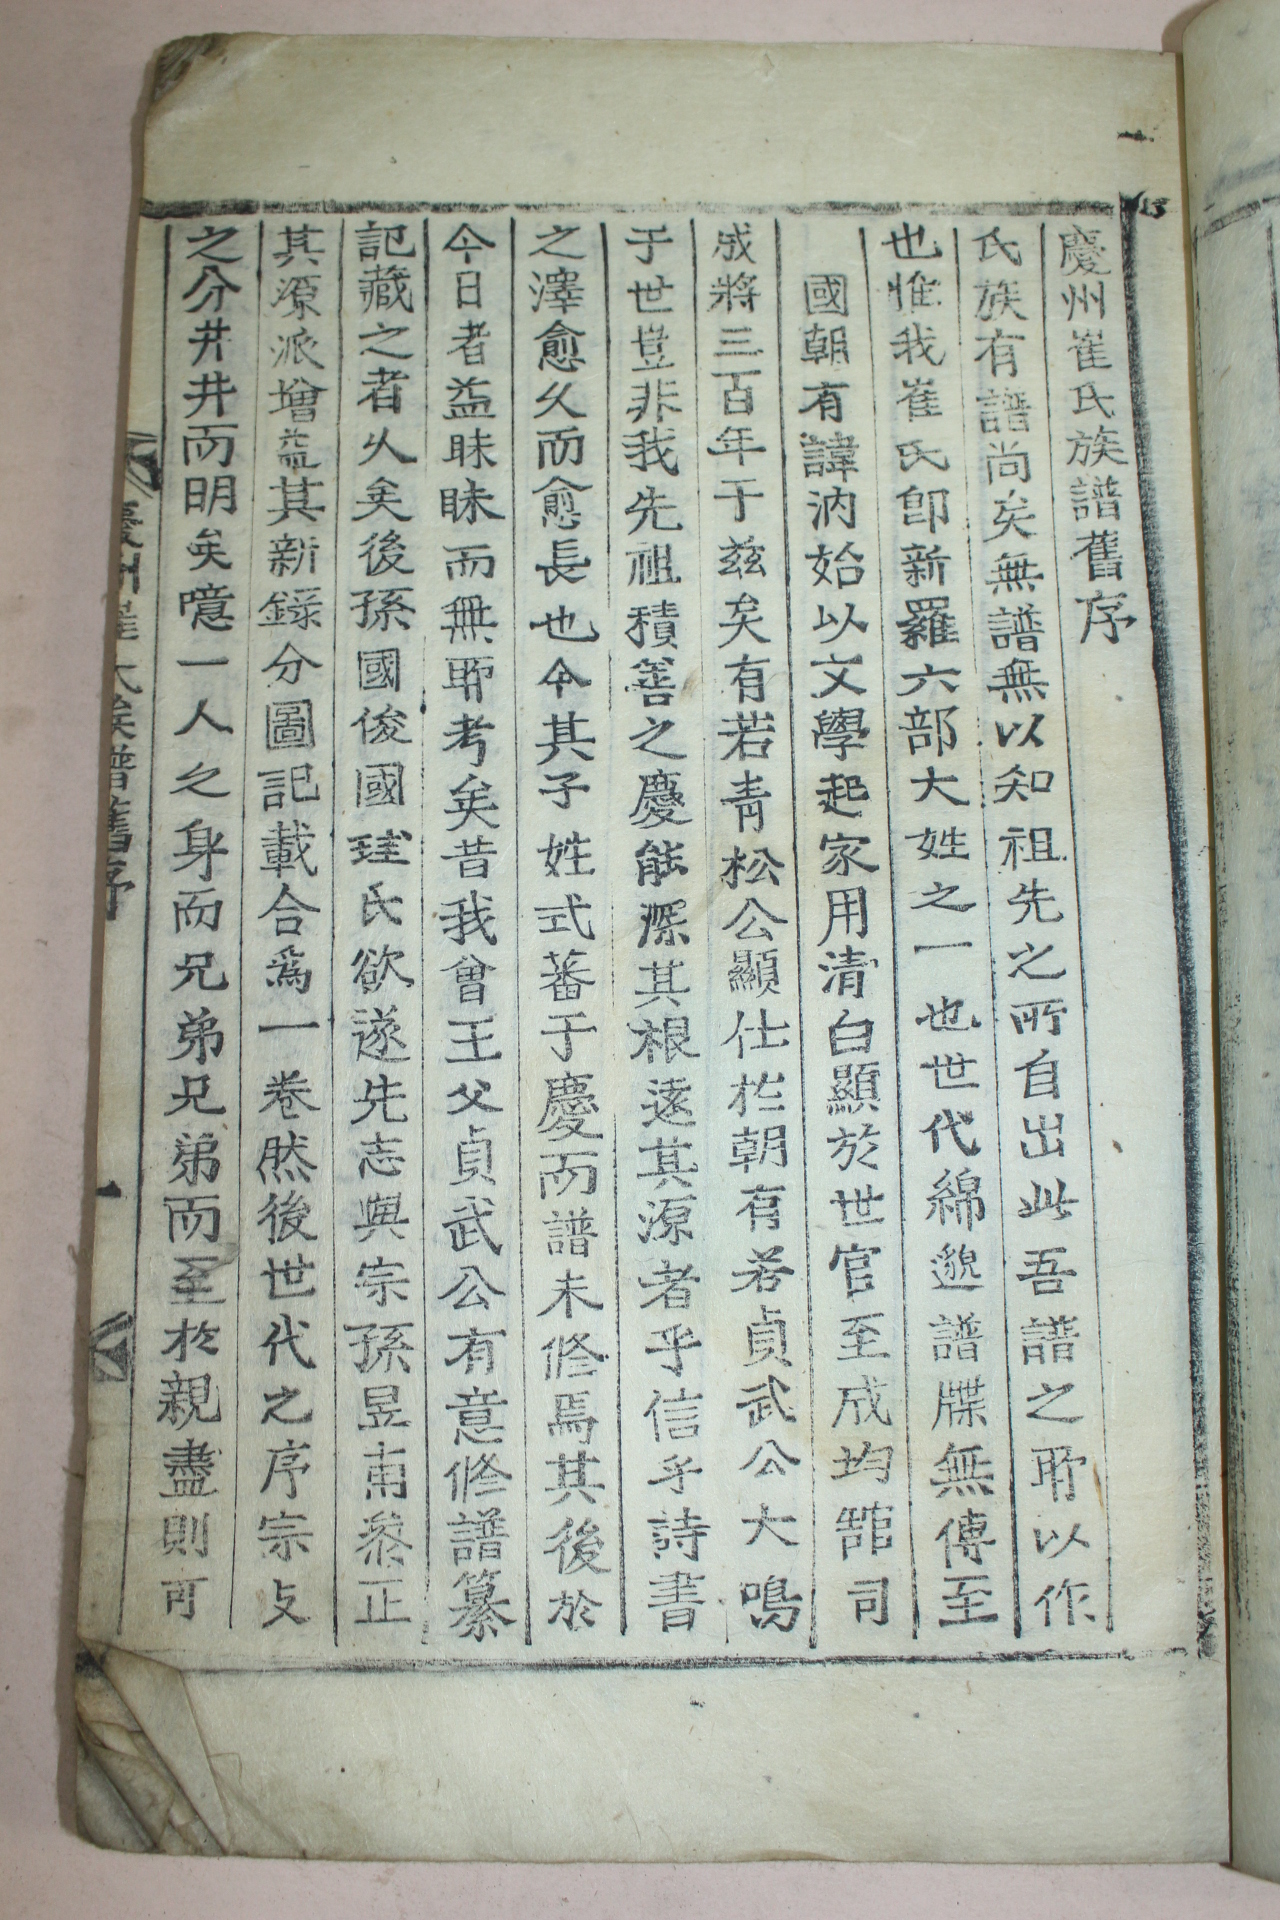 慶州崔氏族譜舊序
氏族有譜尚矣無譜無以知祖先之所自出此吾譜之所以作
也惟我崔氏卽新羅六部大姓之一也世代綿邈譜牒無傳至
國朝有諱汭始以文學起家用清白顯於世官至成均館司
成將三百年于茲矣有若青松公顯仕於朝有若貞武公大鳴
于世豈非我先祖積善之慶能深其根遠其源者乎信乎詩書
之澤愈久而愈長也今其子姓式蕃于慶而譜未修焉其後於
今日者益昧昧而無所考矣昔我曾王父貞武公有意修譜纂
記藏之者久矣後孫國俊國珪氏欲遂先志與宗孫昱甫叅正
其源派增益其新錄分圖記載合爲一卷然後世代之序宗支
之分井井而明矣噫一人之身而兄弟兄弟而至於親盡則可
慶州崔氏族譜舊序
一